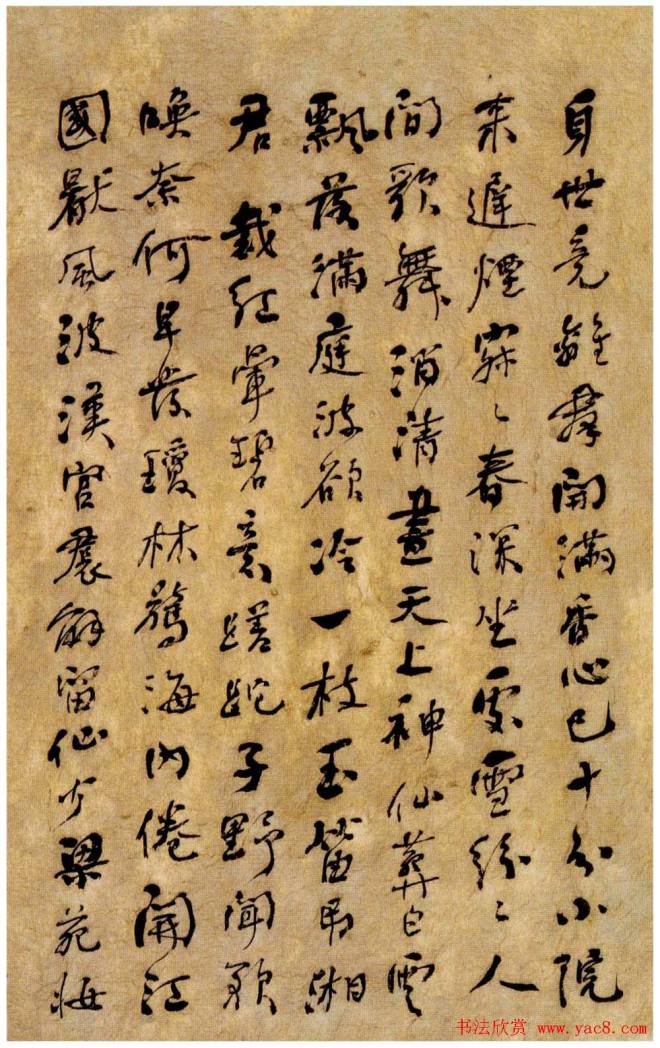 身世竟離群開滿香心已十分小院
來遲煙寂〻春深坐處雪紛〻人
間歌舞消清晝天上神仙葬白雲
飄落滿庭波欲冷一枝玉笛弔湘
君 裁紅暈碧意蹉跎子野聞歌
喚奈何早發瓊林驚海內倦開江
國厭風波漢宮裝解留仙少梁苑悔
书法欣赏 www.yac8.com